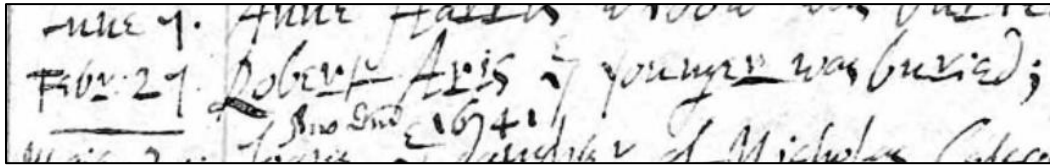 June 7. Anne Harris widow was burie
Febr: 27. Robert Aris ye younger was buried;
Ano Dni 1641
daughter of Nicholas